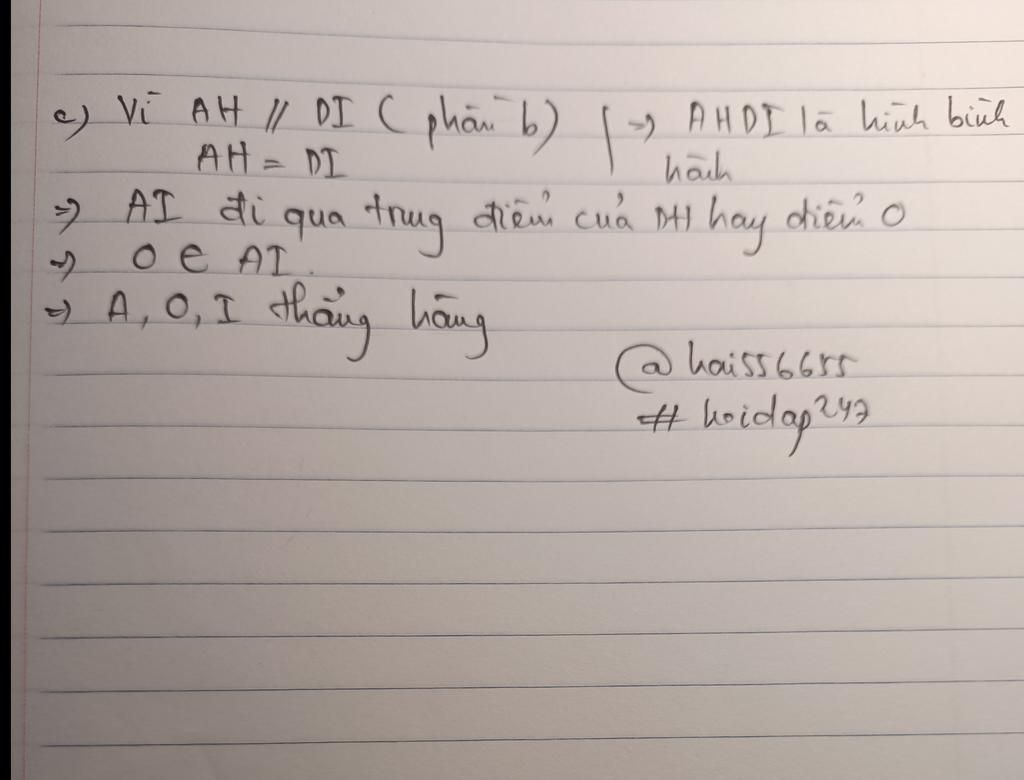 c) Vì AH // DI ( phần b) } => AHDI là hình bình
AH = DI hành
=> AI đi qua trung điểm của DH hay điểm O
=> O ∈ AI.
=> A, O, I thẳng hàng
@hai556655
# hoidap247